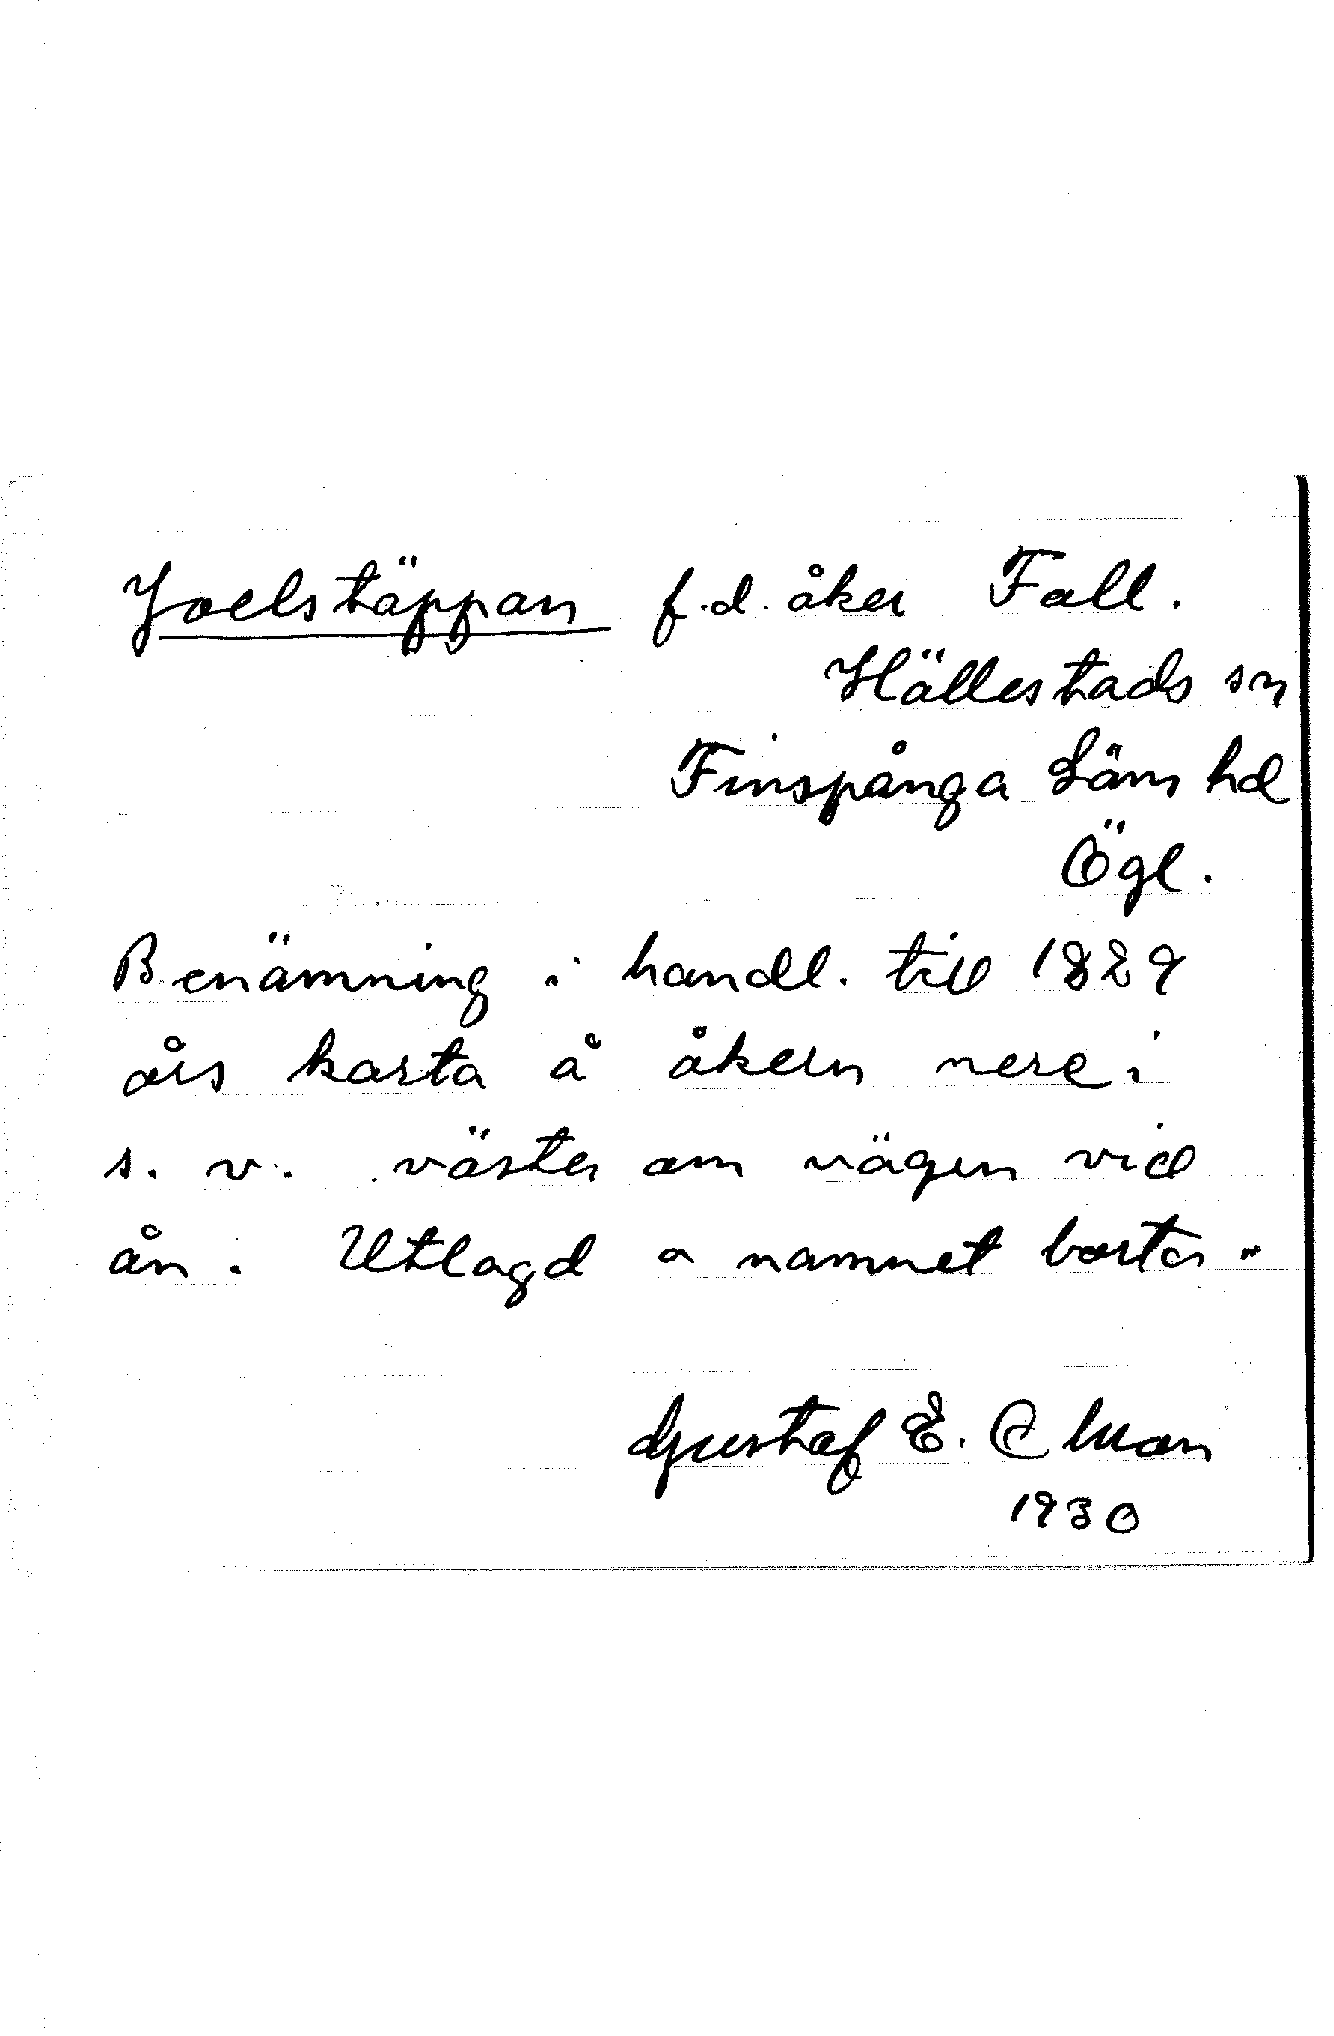 Joelstäppan f.d. åker Fall.
Hällestads sn
Finspånga Läns hd
Ögl.
Benämning i handl. till 1829
års karta å åkern nere i
s. v. väster om vägen vid
ån. Utlagd o namnet borta.
Gustaf E. Ohman
1930